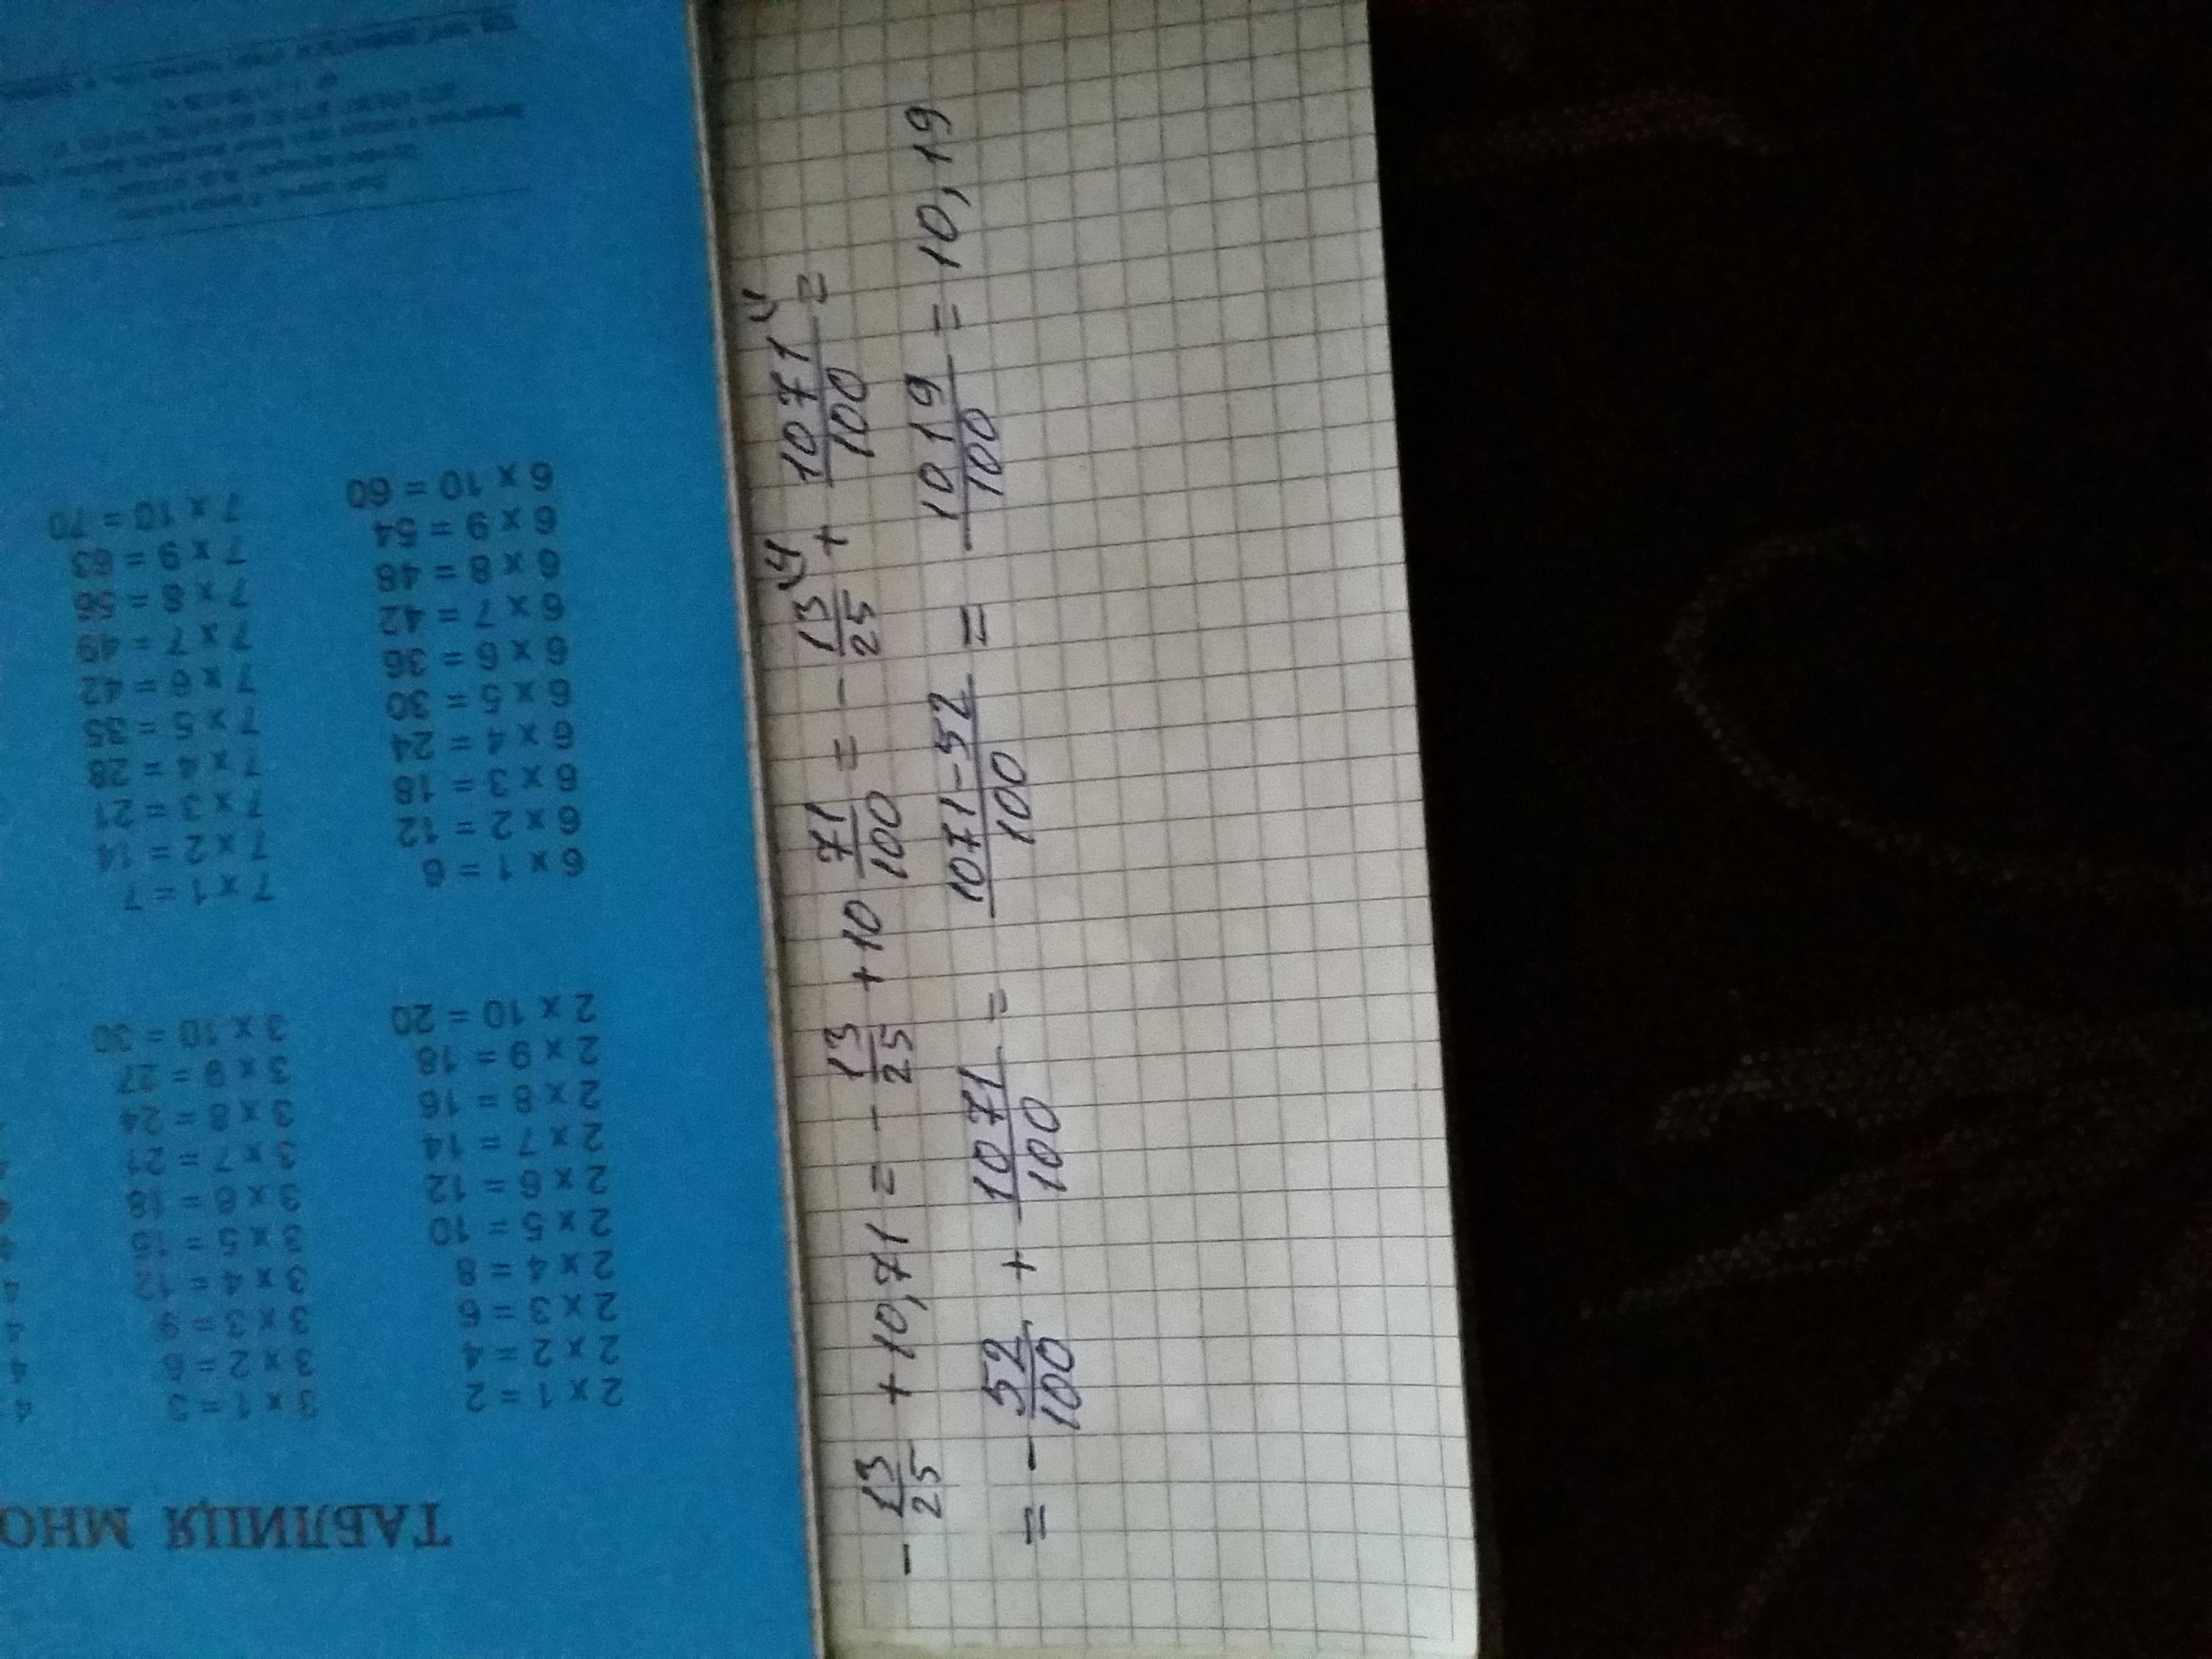 -13/25 + 10,71 = -13/25 + 10 71/100 = -13/25 \4 + 1071/100 \1 =
= -52/100 + 1071/100 = 1071-52/100 = 1019/100 = 10,19
ТАБЛИЦЯ МНО
2 x 1 = 2
2 x 2 = 4
2 x 3 = 6
2 x 4 = 8
2 x 5 = 10
2 x 6 = 12
2 x 7 = 14
2 x 8 = 16
2 x 9 = 18
2 x 10 = 20
3 x 1 = 3
3 x 2 = 6
3 x 3 = 9
3 x 4 = 12
3 x 5 = 15
3 x 6 = 18
3 x 7 = 21
3 x 8 = 24
3 x 9 = 27
3 x 10 = 30
4
4
4
4
4
6 x 1 = 6
6 x 2 = 12
6 x 3 = 18
6 x 4 = 24
6 x 5 = 30
6 x 6 = 36
6 x 7 = 42
6 x 8 = 48
6 x 9 = 54
6 x 10 = 60
7 x 1 = 7
7 x 2 = 14
7 x 3 = 21
7 x 4 = 28
7 x 5 = 35
7 x 6 = 42
7 x 7 = 49
7 x 8 = 56
7 x 9 = 63
7 x 10 = 70